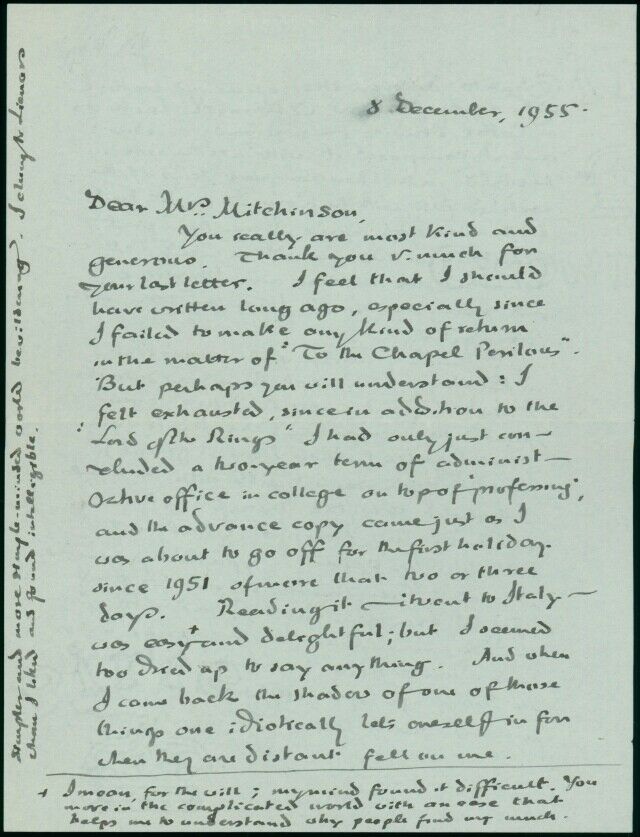 8 December, 1955.
Dear Mrs. Mitchinson,
You really are most kind and
generous. Thank you v. much for
your last letter. I feel that I should
have written long ago, especially since
I failed to make any kind of return
in the matter of "To the Chapel Perilous".
But perhaps you will understand: I
felt exhausted, since in addition to the
"Lord of the Rings" I had only just con-
cluded a two-year term of administ-
rative office in college on top of 'professing',
and the advance copy came just as I
was about to go off for the first holiday
since 1951 of more than two or three
days. Reading it — it went to Italy —
was easy+ and delightful; but I seemed
too dried up to say anything. And when
I came back the shadow of one of those
things one idiotically lets oneself in for
when they are distant fell on me.
+ I mean, for the will; my mind found it difficult. You
move in the complicated world with an ease that
helps me to understand why people find my much
simpler and more simple-minded world bewildering. I clung to
whom I liked and found intelligible.